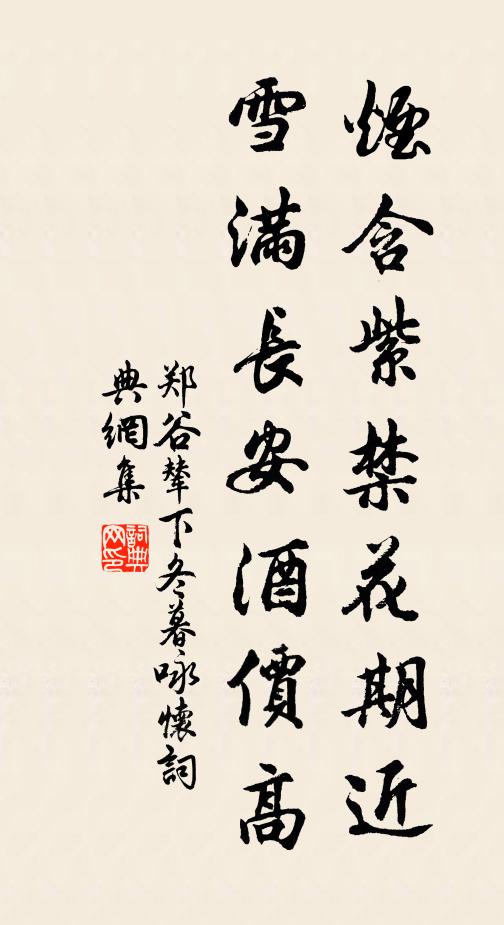 煙含紫禁花期近
雪滿長安酒價高
郑谷輦下冬暮咏懷詞
典網集
詞典
网印